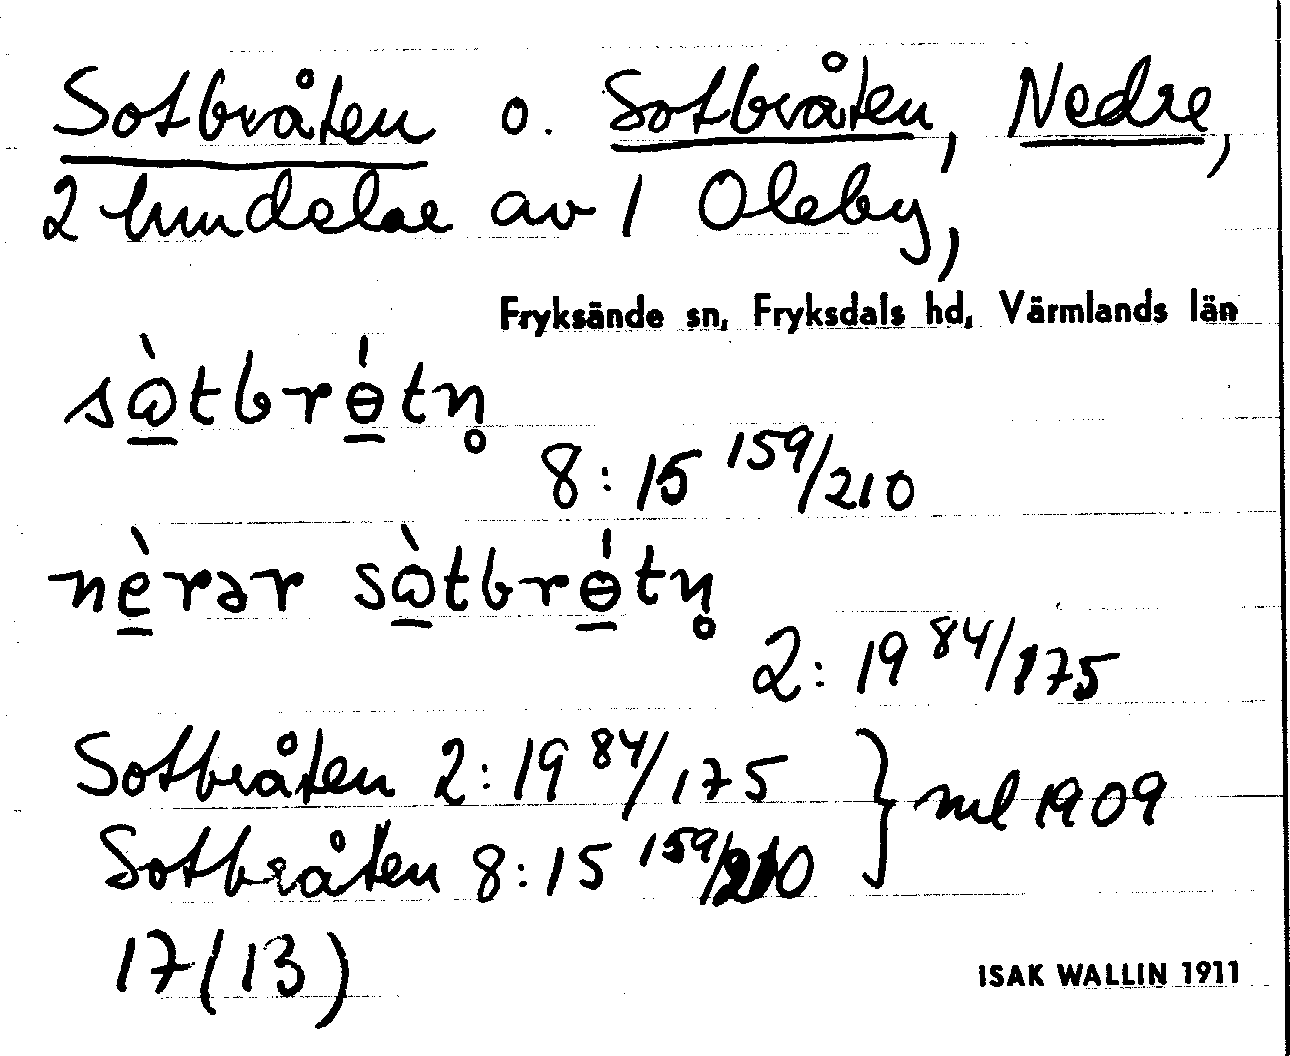 Sotbråten o. Sotbråten, Nedre,
2 hmdelar av 1 Oleby,
Fryksände sn, Fryksdals hd, Värmlands län
sὼtbrɵ́tn̥
8:15 159/210
nèrər sὼtbrɵ́tn̥
2:19 84/175
Sotbråten 2:19 84/175
Sotbråten 8:15 159/210 } ml 1909
17(13)
ISAK WALLIN 1911